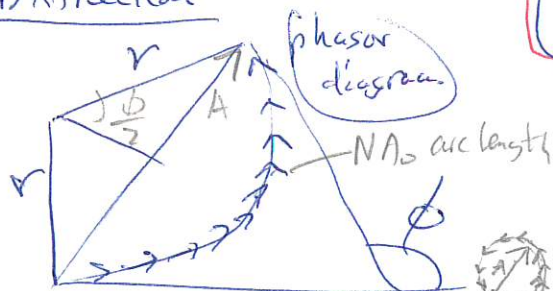 Diffraction
phasor
diagram
r
A
ϕ/2
NA₀ arc length
r
ϕ